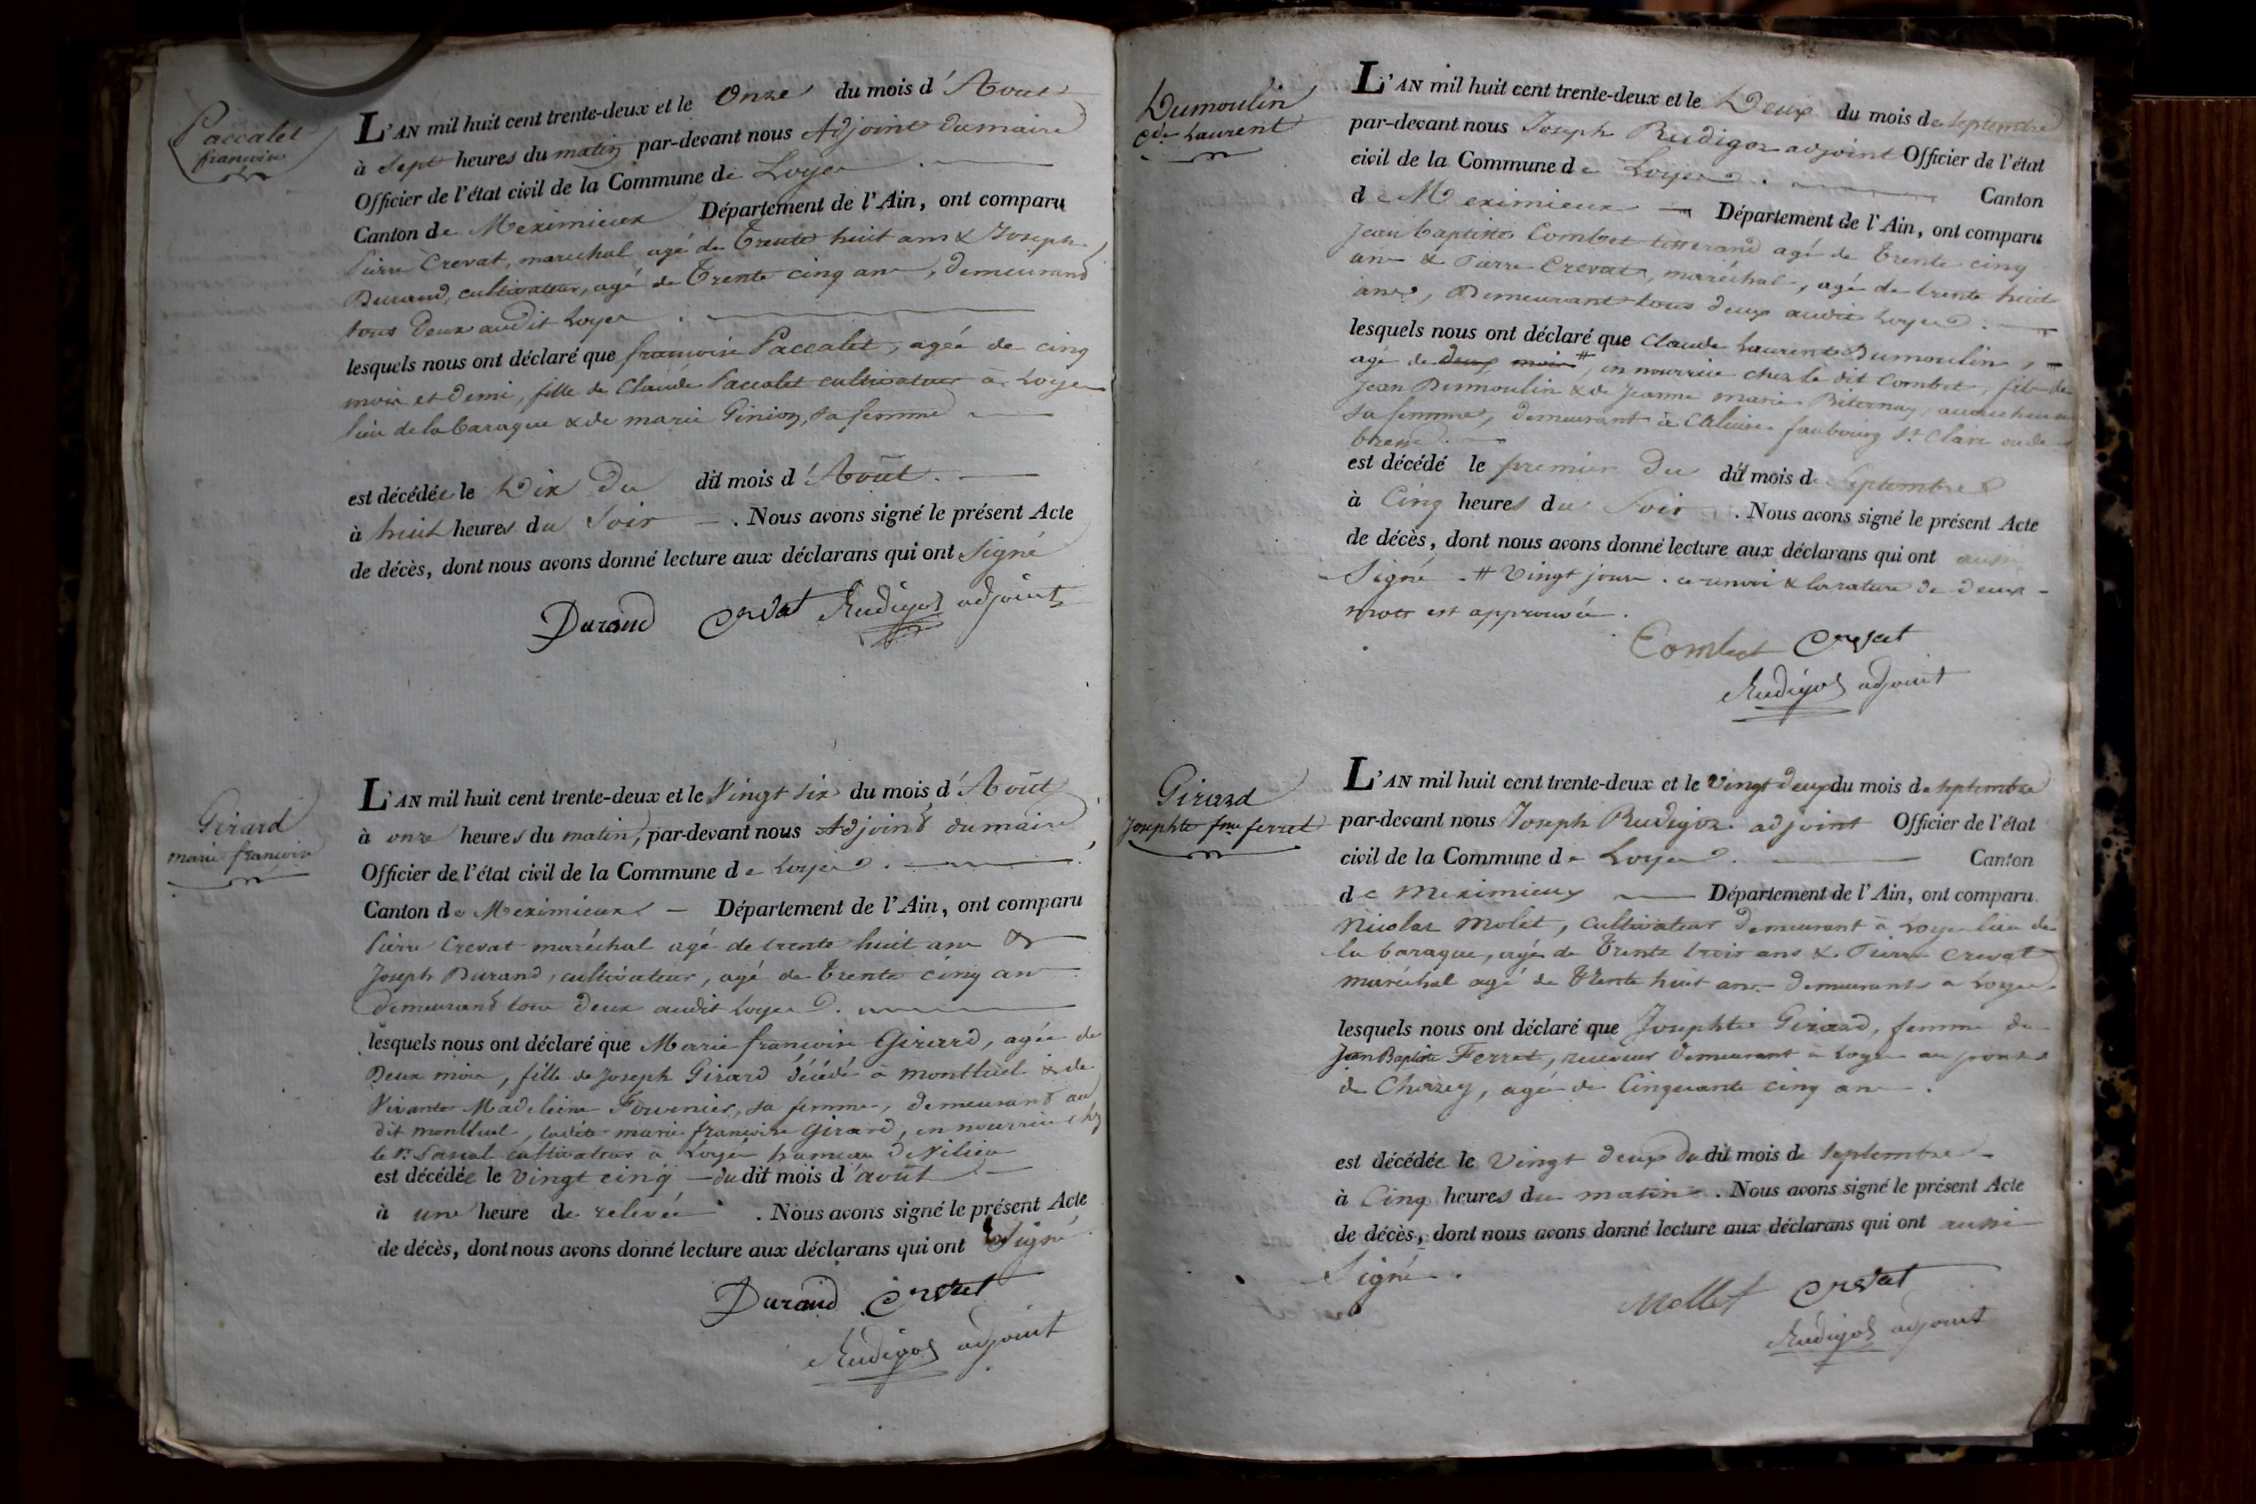 Paccalet
françoise
L'AN mil huit cent trente-deux et le Onze du mois d'Août
à Sept heures du matin par-devant nous Adjoint du maire
Officier de l'état civil de la Commune de Loyes
Canton de Meximieux Département de l'Ain, ont comparu
Pierre Crevat, maréchal agé de Trente huit ans & Joseph
Durand, cultivateur, agé de Trente cinq ans, demeurand
tous deux audit Loyes.
lesquels nous ont déclaré que françoise Paccalet, agée de cinq
mois et demi, fille de Claude Paccalet cultivateur à Loyes
lieu de la baraque & de marie Ginion, sa femme
est décédée le Dix du dit mois d'Août.
à huit heures du Soir. Nous avons signé le présent Acte
de décès, dont nous avons donné lecture aux déclarans qui ont Signé
Durand Crevat Rudigoz adjoint
Girard
marie françoise
L'AN mil huit cent trente-deux et le Vingt six du mois d'Août
à onze heures du matin, par-devant nous Adjoint du maire
Officier de l'état civil de la Commune de Loyes.
Canton de Meximieux Département de l'Ain, ont comparu
Pierre Crevat maréchal agé de trente huit ans &
Joseph Durand, cultivateur, agé de Trente cinq ans
demeurand tous deux audit Loyes.
lesquels nous ont déclaré que Marie françoise Girard, agée de
Deux mois, fille de Joseph Girard décédé à montluel & de
Vivante Madeleine Fournier, sa femme, demeurand au
dit montluel, ladite marie françoise Girard, en nourrice chez
le Sr. cultivateur à Loyes hameau de Vilieu
est décédée le vingt cinq du dit mois d'août
à une heure de relevée. Nous avons signé le présent Acte
de décès, dont nous avons donné lecture aux déclarans qui ont Signé
Durand Crevat
Rudigoz adjoint
Dumoulin
Cde Laurent
L'AN mil huit cent trente-deux et le Deux du mois de septembre
par-devant nous Joseph Rudigoz adjoint Officier de l'état
civil de la Commune de Loyes. Canton
de Meximieux Département de l'Ain, ont comparu
Jean baptiste Combet tisserand agé de Trente cinq
ans & Pierre Crevat, maréchal, agé de trente huit
ans, Demeurant tous deux audit Loyes.
lesquels nous ont déclaré que Claude Laurent Dumoulin,
agé de deux mois #, en nourrice chez le dit Combet, fils de
Jean Dumoulin & de Jeanne marie
sa femme, demeurant à Caluire faubourg St. Clair
est décédé le premier du dit mois de Septembre
à Cinq heures du Soir. Nous avons signé le présent Acte
de décès, dont nous avons donné lecture aux déclarans qui ont aussi
Signé # Vingt jours. ce renvoi & la rature de deux
mots est approuvée.
Combet Crevat
Rudigoz adjoint
Girard
Josephte fme ferret
L'AN mil huit cent trente-deux et le Vingt deux du mois de septembre
par-devant nous Joseph Rudigoz adjoint Officier de l'état
civil de la Commune de Loyes. Canton
de Meximieux Département de l'Ain, ont comparu
Nicolas Molet, cultivateur demeurant à Loyes lieu de
la baraque, agé de Trente trois ans & Pierre Crevat
maréchal agé de Trente huit ans demeurants à Loyes.
lesquels nous ont déclaré que Josephte Girard, femme de
Jean Baptiste Ferret, receveur demeurant à Loyes au pont
de Chazey, agée de Cinquante cinq ans.
est décédée le Vingt deux du dit mois de septembre
à Cinq heures du matin. Nous avons signé le présent Acte
de décès, dont nous avons donné lecture aux déclarans qui ont aussi
Signé.
Mollet Crevat
Rudigoz adjoint